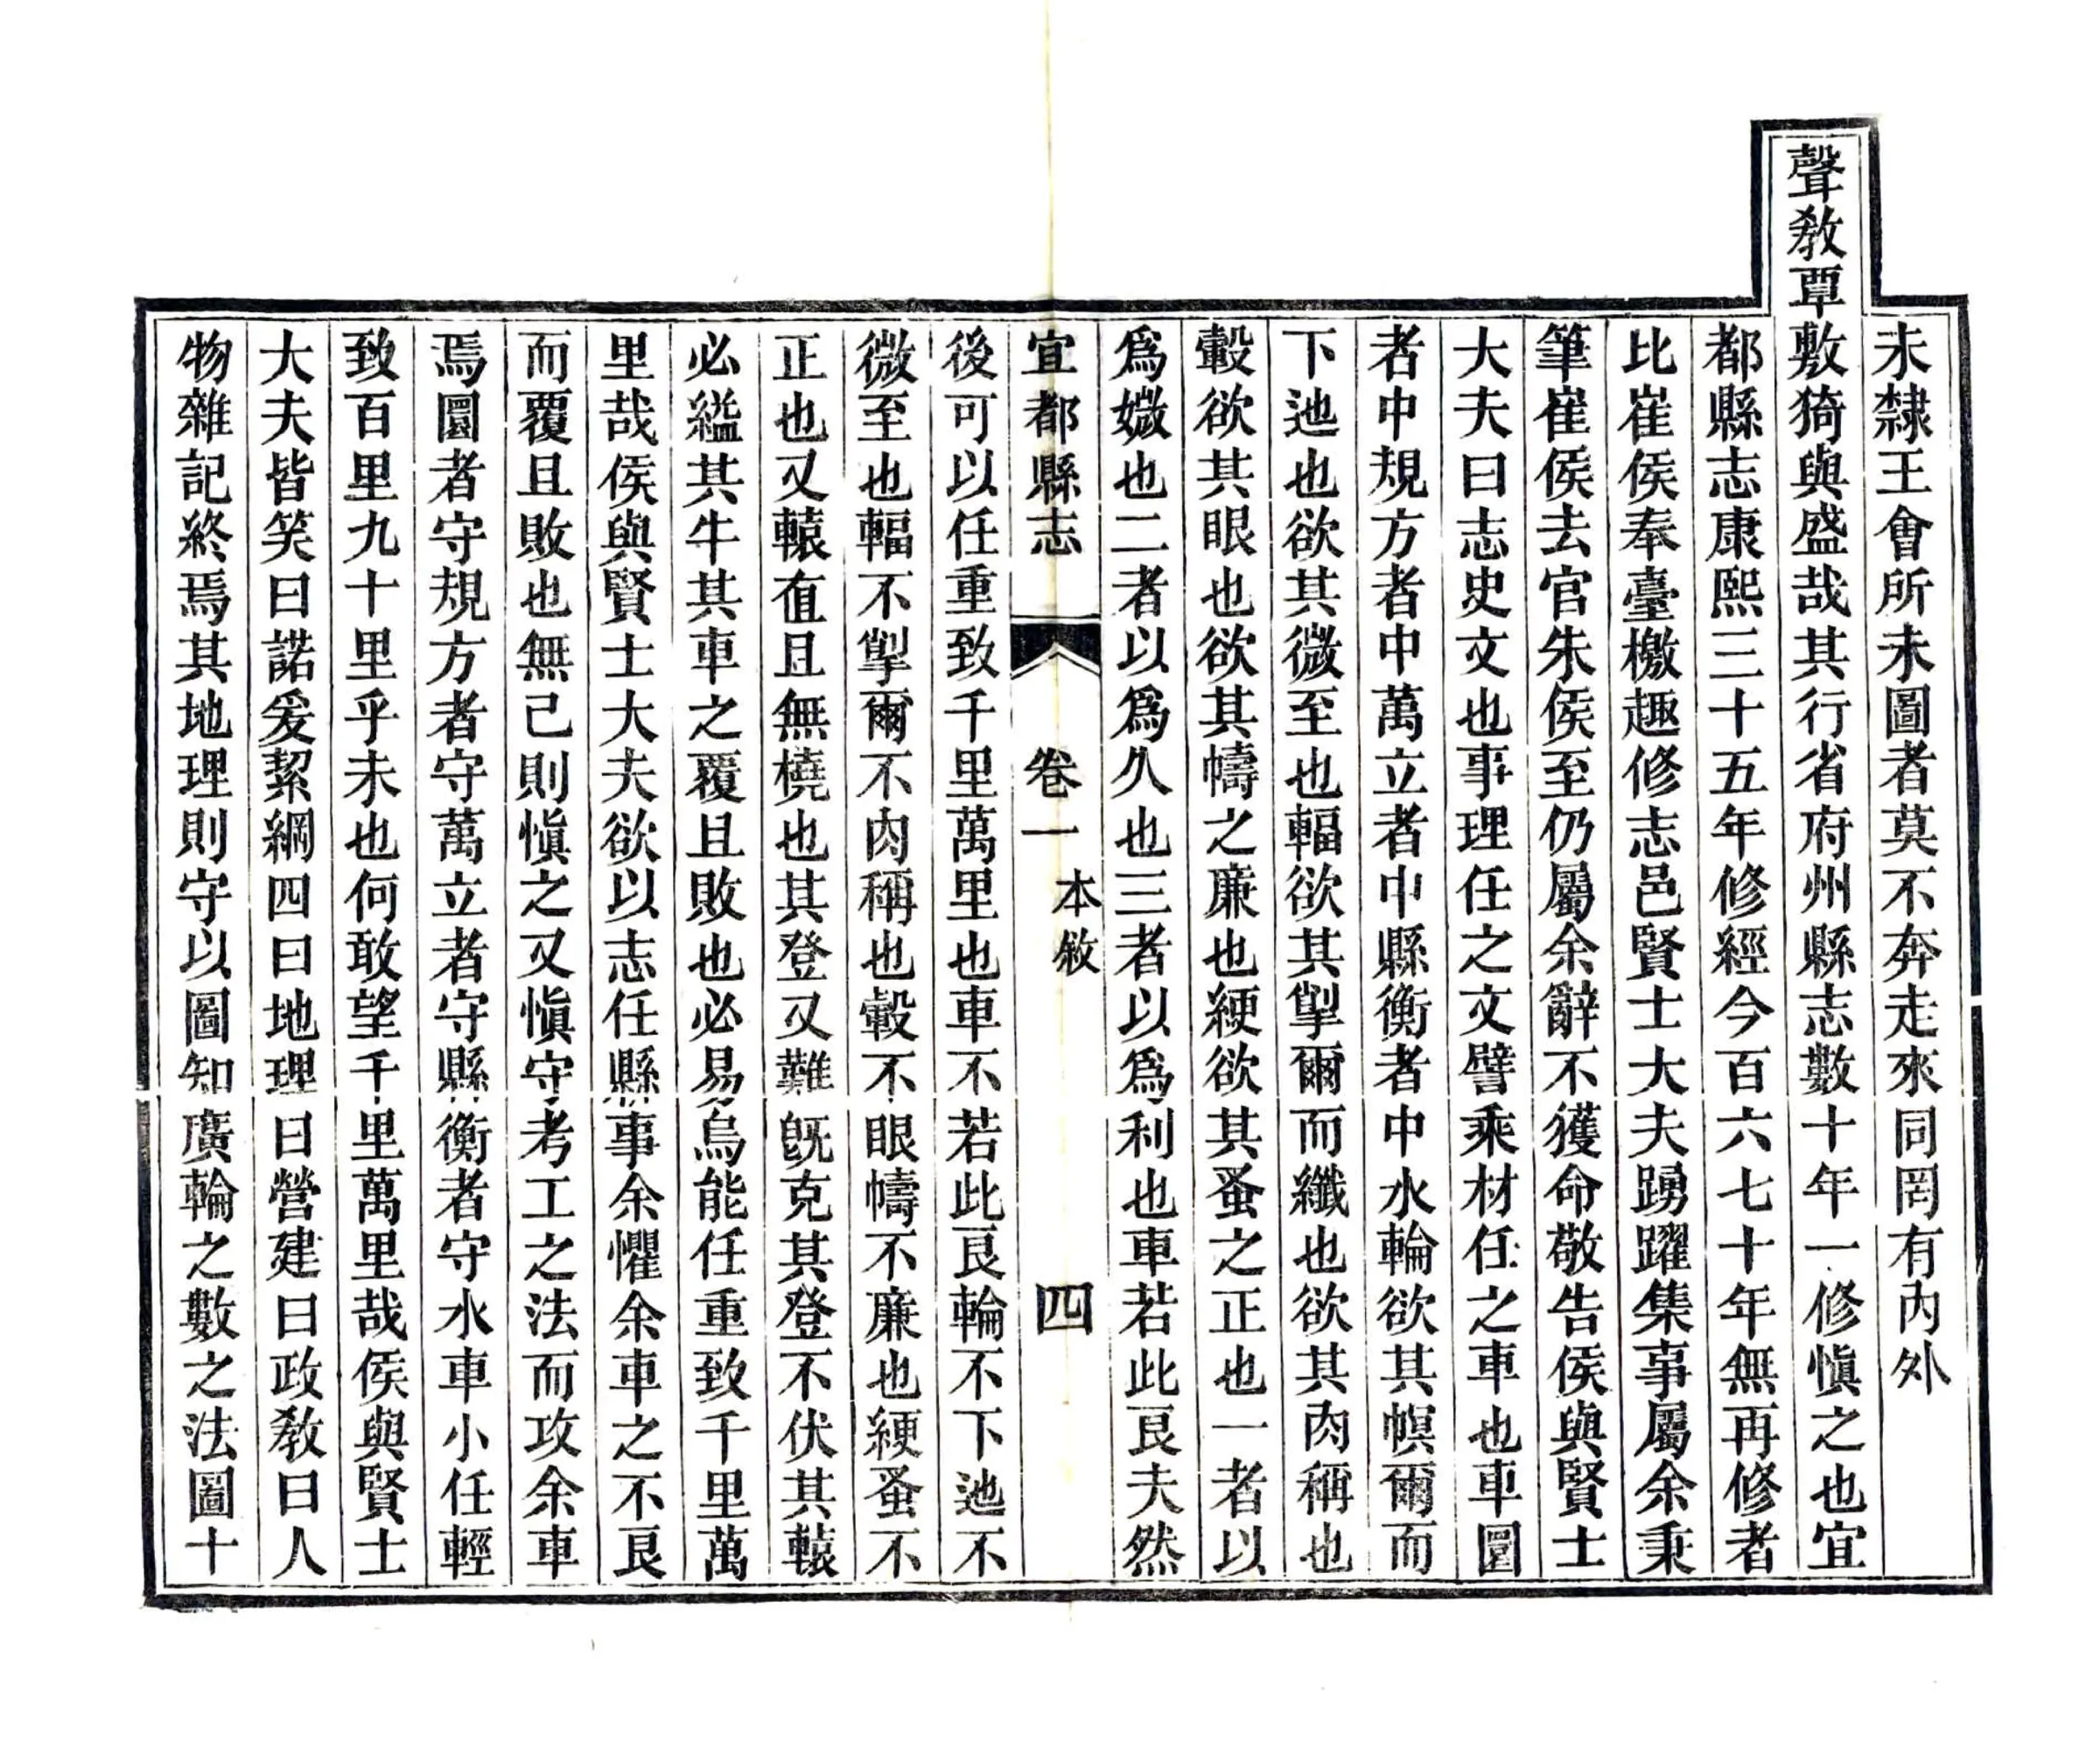 未隸王會所未圖者莫不奔走來同罔有內外
聲教覃敷猗與盛哉其行省府州縣志數十年一修愼之也宜
都縣志康熙三十五年修經今百六七十年無再修者
比崔侯奉臺檄趣修志邑賢士大夫踴躍集事屬余秉
筆崔侯去官朱侯至仍屬余辭不獲命敬告侯與賢士
大夫曰志史文也事理任之文譬乘材任之車也車圜
者中規方者中萬立者中縣衡者中水輪欲其幎爾而
下迆也欲其微至也輻欲其掣爾而纖也欲其肉稱也
轂欲其眼也欲其幬之廉也綆欲其蚤之正也一者以
爲媺也二者以爲久也三者以爲利也車若此良夫然
宜都縣志 卷一 本敘 四
後可以任重致千里萬里也車不若此良輪不下迆不
微至也輻不掣爾不肉稱也轂不眼幬不廉也綆蚤不
正也又轅直且無橈也其登又難旣克其登不伏其轅
必縊其牛其車之覆且敗也必易烏能任重致千里萬
里哉侯與賢士大夫欲以志任縣事余懼余車之不良
而覆且敗也無已則愼之又愼守考工之法而攻余車
焉圜者守規方者守萬立者守縣衡者守水車小任輕
致百里九十里乎未也何敢望千里萬里哉侯與賢士
大夫皆笑曰諾爰絜綱四曰地理曰營建曰政教曰人
物雜記終焉其地理則守以圖知廣輪之數之法圖十